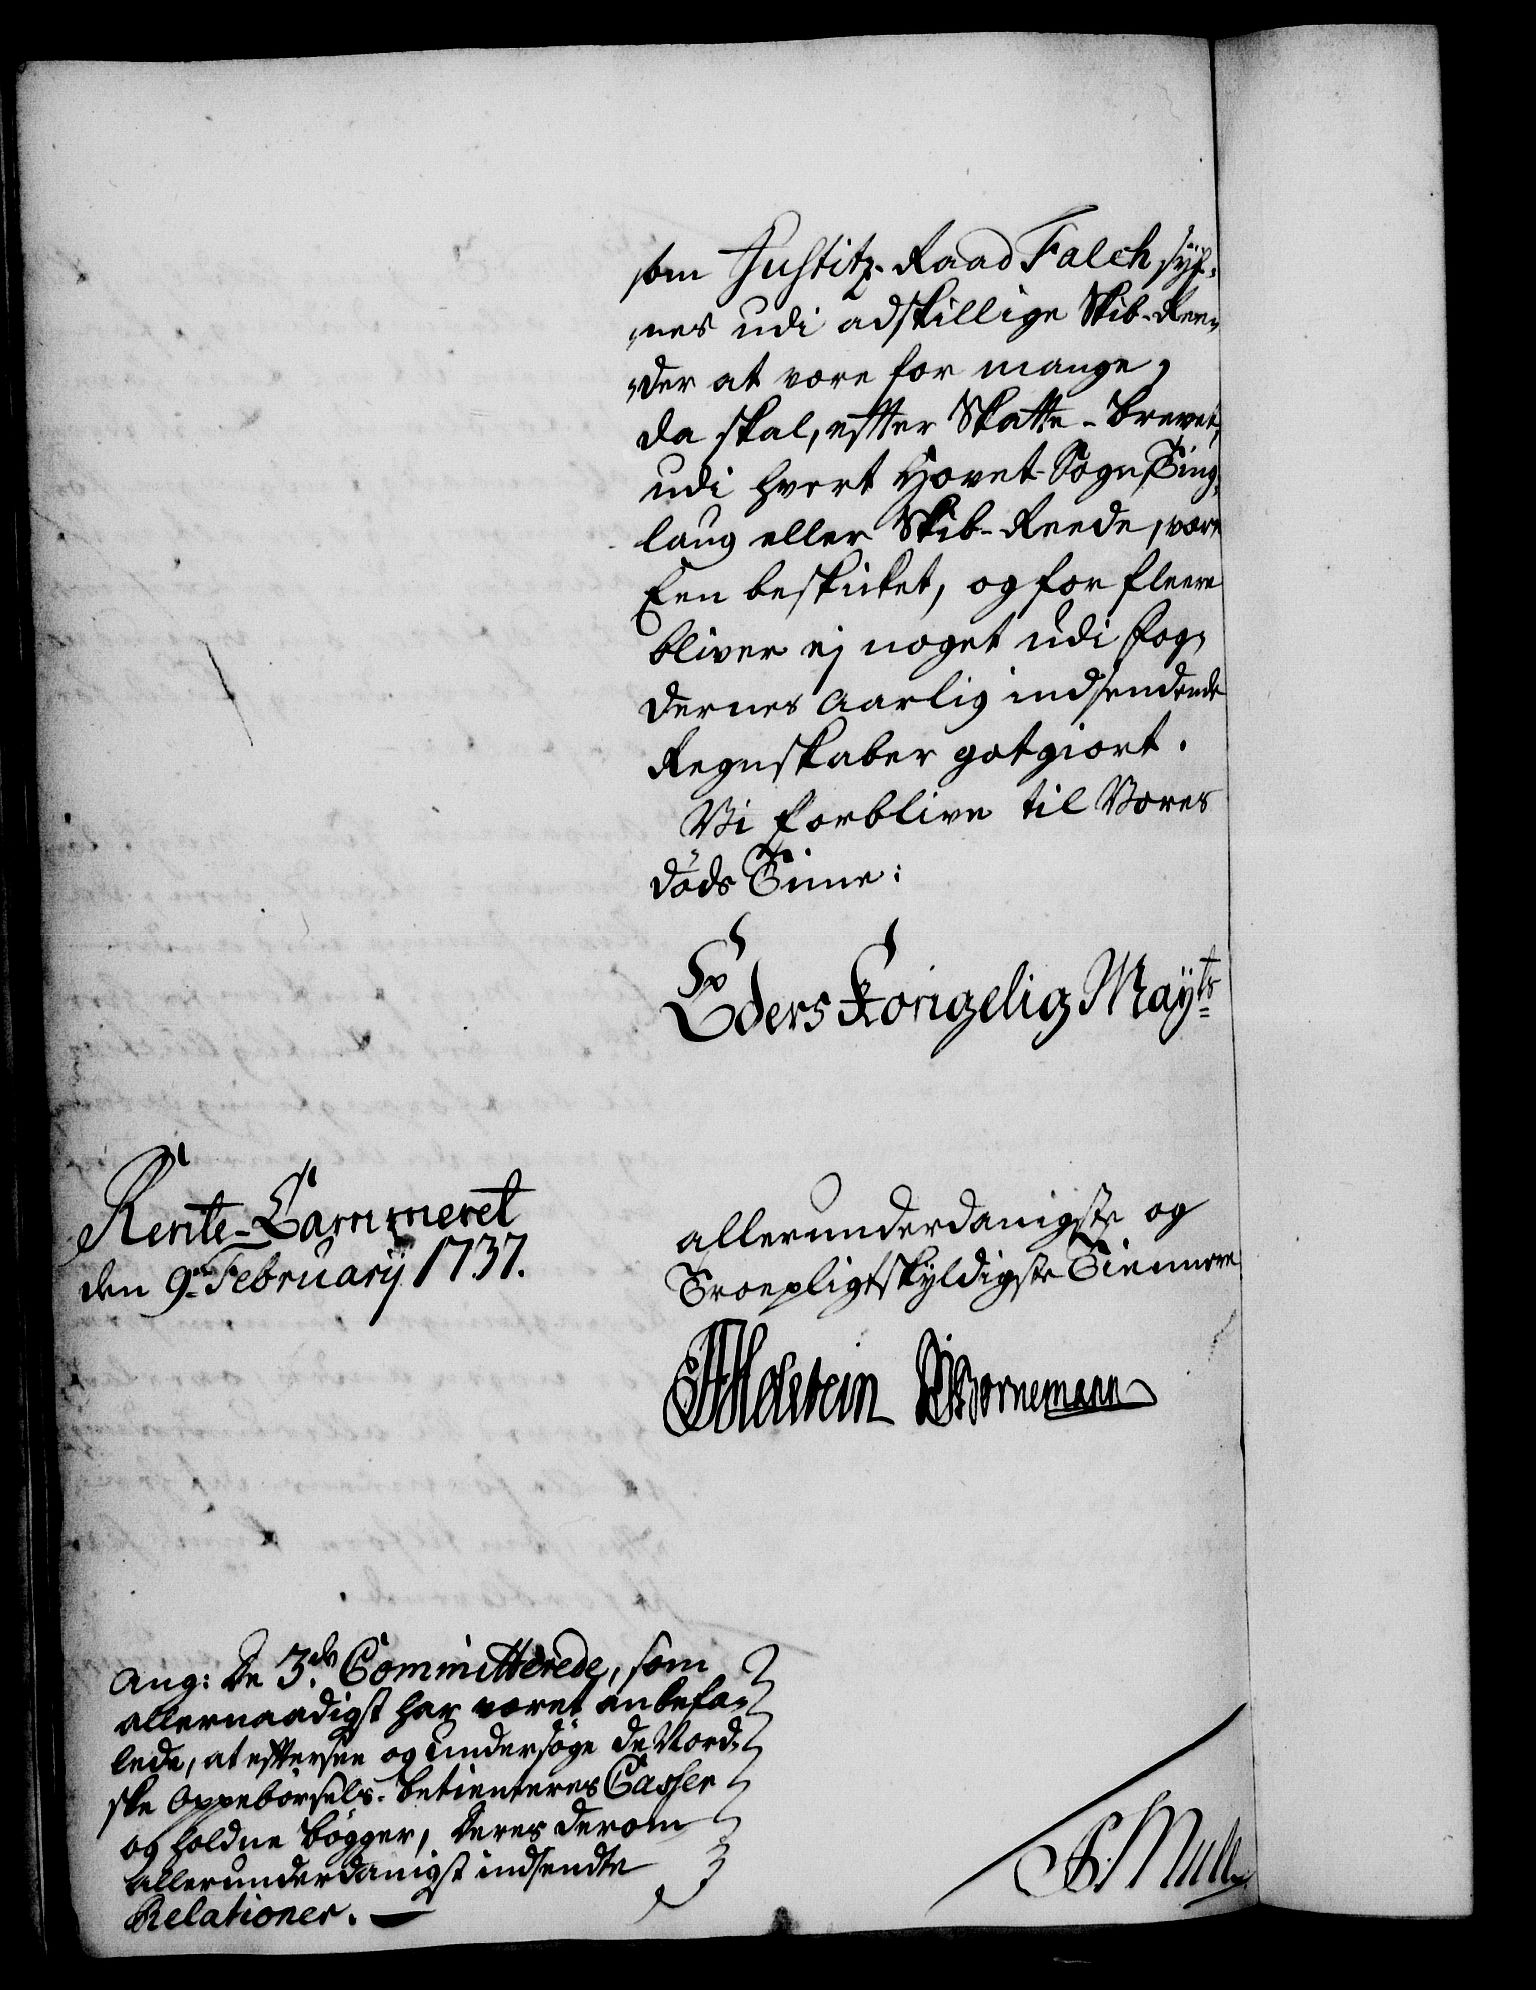 som Justitz-Raad Falch syf-
nes udi adskillige Skib-Ree-
der at være for mange,
da skal, effter Skatte-Brevet,
udi hvert Hovet-Sogn, Ting-
laug eller Skib-Reede, være
Een beskicket, og for fleere
bliver ej noget udi Fog-
dernes aarlig indsendende
Regnskaber gotgiort.
Vi forblive til Vores
döds Time:
Eders Kongelig Mayts
Rente-Cammeret
den 9de February 1737.
allerunderdanigste og
Troepligtskyldigste Tiennere
Holstein Bornemann
Ang: de 3de Committerede, som
allernaadigst har været anbefa-
lede, at efftersee og undersöge de Nord-
ske Oppebörsels-Betienteres Casser
og holdne Bögger, deres derom
allerunderdanigst indsendte
Relationer.